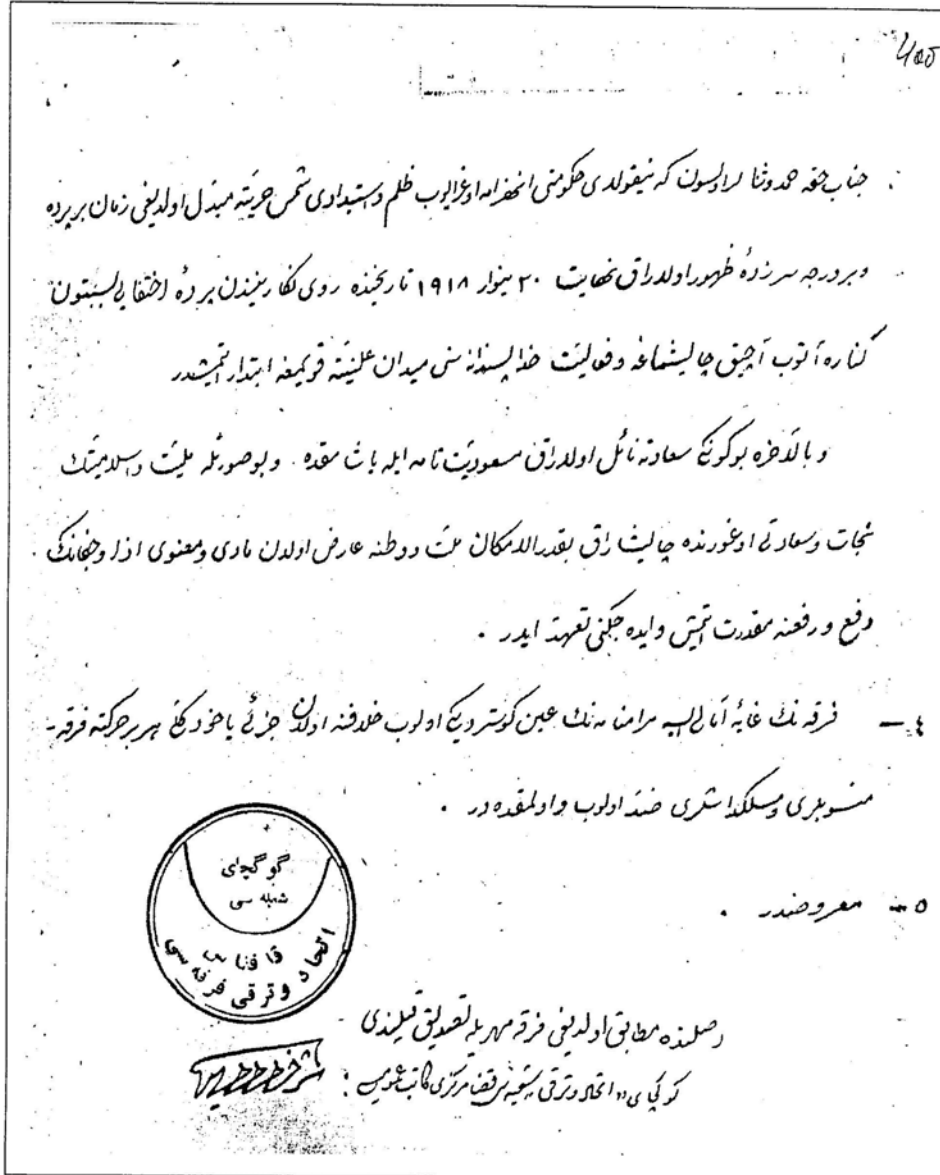 400
جناب حقه حمد وثنا لر اولسون كه نیقولای حكومتی انهزامه اوغرایوب ظلم واستبدادی شمس حریته مبدل اولدیغی زمان بر پرده
وبر درجه سرزدهٔ ظهور اولەراق نهایت ٢٠ ینوار ١٩١٨ تاریخنده روی نگارینیندن پردهٔ اختفایی بسبتون
كناره آتوب آچیق چالیشماغه وفعالیت خداپسندانه سنی میدان علنیته قویمغه ابتدار ایتمیشدر
و بالآخره بوكونكی سعادته نائل اولەراق مسعودیت تامه ایله یاشامقده. و بوصورتله ملیت و اسلامیتك
نجات وسعادتی اوغورنده چالیشاراق بقدر الامكان ملت و وطنه عارض اولان مادی ومعنوی اذا وجفانك
دفع و رفعنه مقدرت ایتمیش وایده جكنی تعهد ایدر .
٤ — فرقه نك غایهٔ آمالی ایسه مرامنامه نك عین كوستردیكی اولوب خلافنه اولان جزئی یاخود كلی هر بر حركته فرقه-
منسوبلری ومسلكداشلری ضد اولوب و اولمقده در .
٥ — معروضدر .
گوگچای
شعبه سی
قافقاس
اتحاد وترقی فرقه سی
اصلنه مطابق اولدیغی فرقه مهریله تصدیق قیلیندی
كوكچای «اتحاد وترقی» مركزی كاتب عمومیسی :